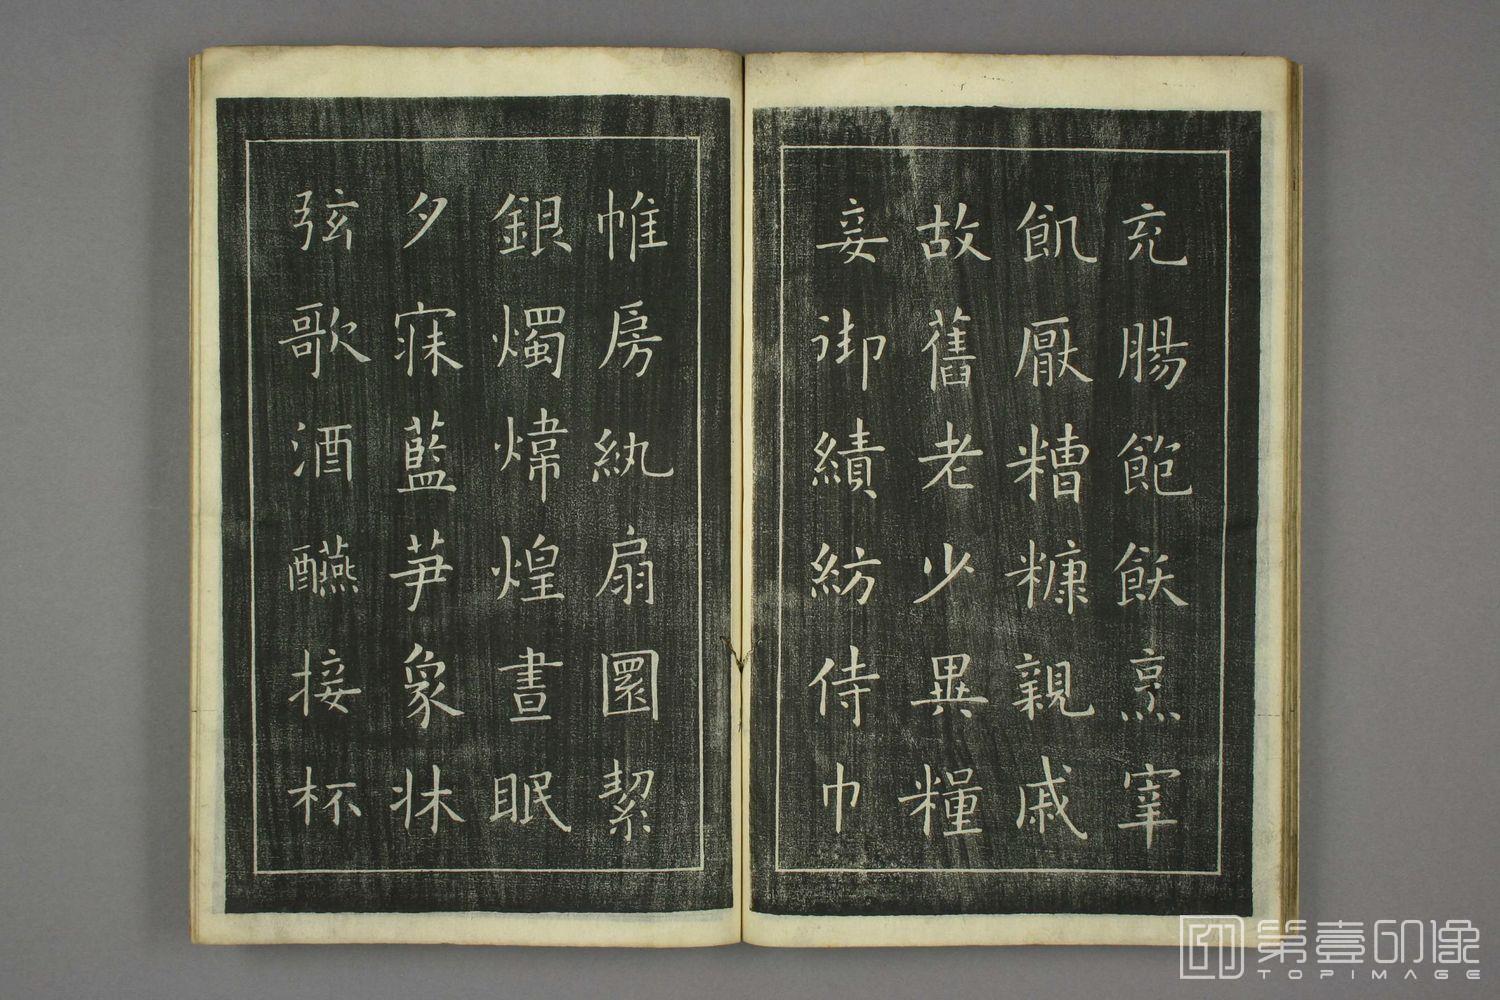 充腸飽飫烹宰
飢厭糟糠親戚
故舊老少異糧
妾御績紡侍巾
帷房紈扇圎絜
銀燭煒煌晝眠
夕寐藍笋象牀
弦歌酒醼接杯
第壹印像
TOPIMAGE